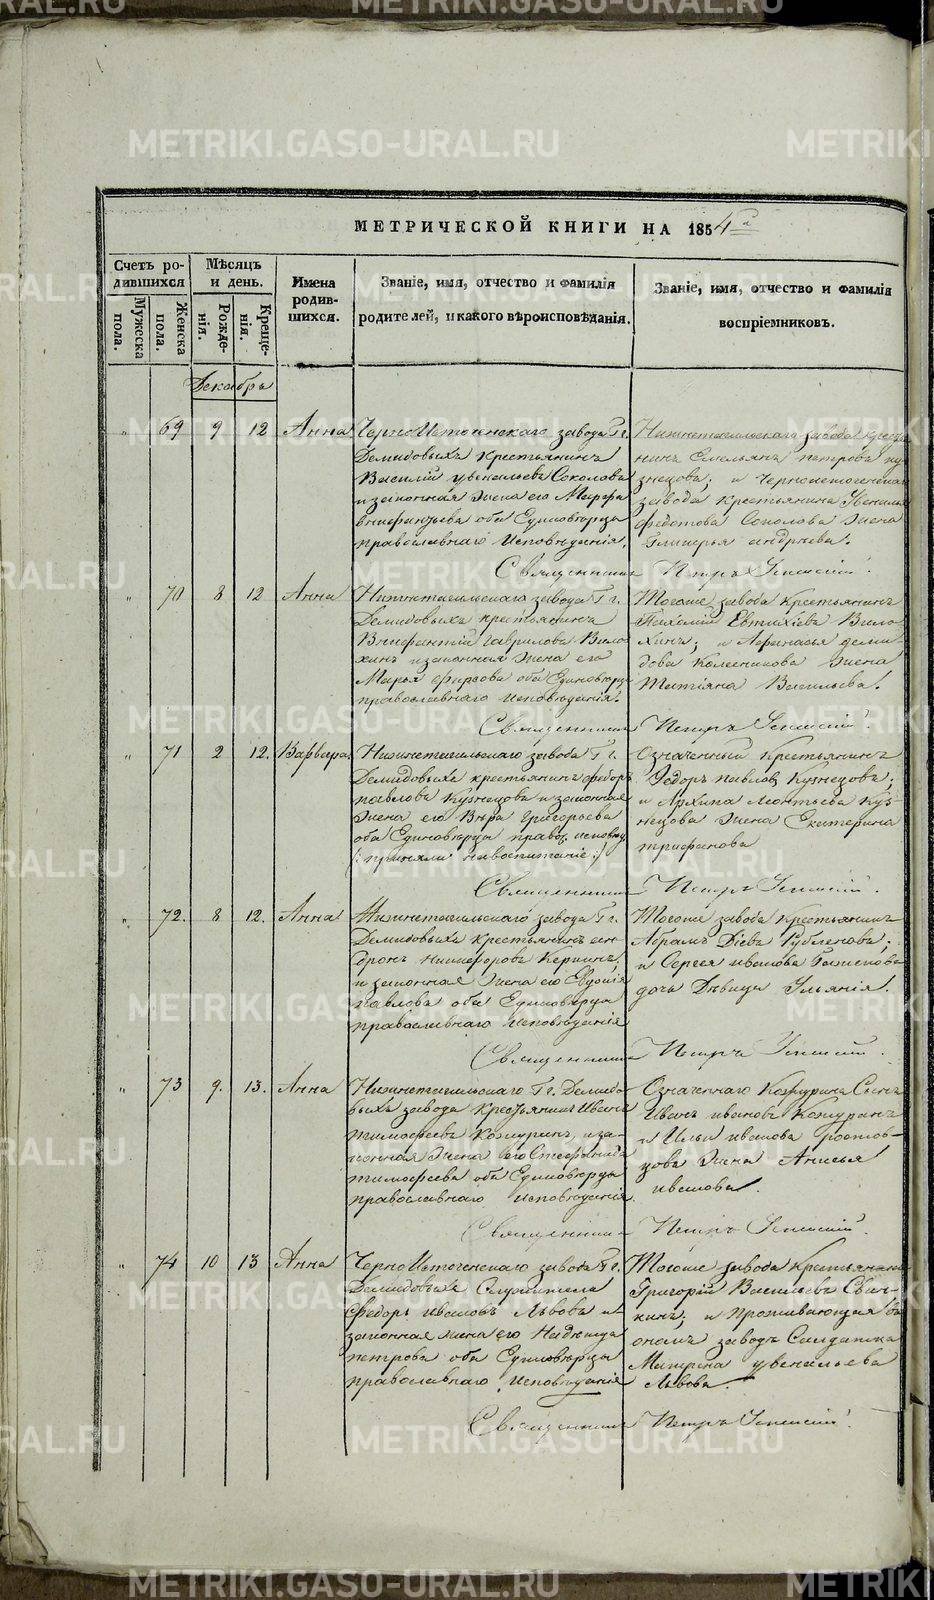 METRIKI.GASO-URAL.RU
МЕТРИЧЕСКОЙ КНИГИ НА 1854 г
Счетъ ро-
дившихся
Мужеска
пола.
Женска
пола.
Мѣсяцъ
и день.
Рожде-
нія.
Креще-
нія.
Имена
родив-
шихся.
Званіе, имя, отчество и фамилія
родителей, и какого вѣроисповѣданія.
Званіе, имя, отчество и фамилія
воспріемниковъ.
Декабрь
69 9 12 Анна
Черно Источинскаго завода Гг.
Демидовыхъ крестьянинъ
Василій Увенальевъ Соколовъ
и законная жена его Марфа
оба Единовѣрца
православнаго исповѣданія.
Нижнетагильскаго завода кресть
нинъ Емельянъ Петровъ Ку
знецовъ; и Черноисточинскаго
завода крестьянина Увеналья
Федотова Соколова жена
Гликерья Андреева.
Священникъ Петръ
70 8 12 Анна
Нижнетагильскаго завода Гг.
Демидовыхъ крестьянинъ
Внифантій Гавриловъ Вило
хинъ и законная жена его
Марья Фирсова оба Единовѣрца
православнаго исповѣданія.
Тогоже завода крестьянинъ
Евтихіевъ Вило
хинъ; и Афанасья Деми
дова Колесникова жена
Татіяна Васильева.
Священникъ Петръ
71 2 12. Варвара
Нижнетагильскаго завода Гг.
Демидовыхъ крестьянинъ Федоръ
Павловъ Кузнецовъ и законная
жена его Вѣра Григорьева
оба Единовѣрца правос. исповѣд.
(: приняли на воспитаніе:)
Означенный крестьянинъ
Федоръ Павловъ Кузнецовъ;
и Архипа Леонтьева Куз-
нецова жена Екатерина
Трифонова
Священникъ Петръ
72. 8 12. Анна
Нижнетагильскаго завода Гг.
Демидовыхъ крестьянинъ Ан-
дронъ Никифоровъ
и законная жена его Евдокія
Павлова оба Единовѣрца
православнаго исповѣданія
Тогоже завода крестьянинъ
Абрамъ Діевъ
и Сергея Иванова
дочь дѣвица Ульянія.
Священникъ Петръ
73 9. 13. Анна
Нижнетагильскаго Гг. Демидо-
выхъ завода крестьянинъ Иванъ
Тимофеевъ Кожуринъ, и за-
конная жена его Стефанида
Тимофеева оба Единовѣрца
православнаго исповѣданія.
Означеннаго Кожурина сынъ
Иванъ Ивановъ Кожуринъ
и Ильи Иванова Ростов-
цова жена Анисья
Иванова.
Священникъ Петръ
74 10 13 Анна
Черно Источенскаго завода Гг.
Демидовыхъ Служителя
Федоръ Ивановъ Львовъ и
законная жена его Надежда
Петрова оба Единовѣрца
православнаго исповѣданія
Тогоже завода крестьянинъ
Григорій Васильевъ
и проживающая въ
ономъ заводѣ Салдатка
Матрена Увенальева
Львова.
Священникъ Петръ